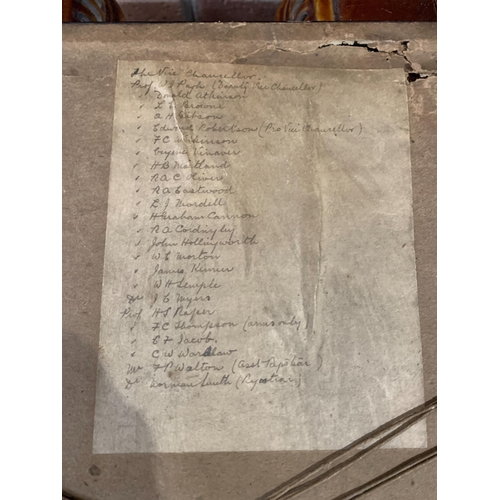 The Vice Chancellor.
Prof. W J Pugh (Deputy Vice Chancellor)
" Donald Atkinson
" L E Browne
" A H Gibson
" Edward Robertson (Pro Vice Chancellor)
" F C Wilkinson
" Eugene Vinaver
" H B Maitland
" R A C Oliver
" R A Eastwood
" L J Mordell
" H Graham Cannon
" R A Cordingley
" John Hollingworth
" W E Morton
" James Kenner
" W H Semple
Dr J E Myers
Prof H S Raper
" F C Thompson (arms only
" E F Jacob.
" C W Wardlaw
Mr F P Walton (Asst Registrar)
Dr Norman Smith (Registrar)